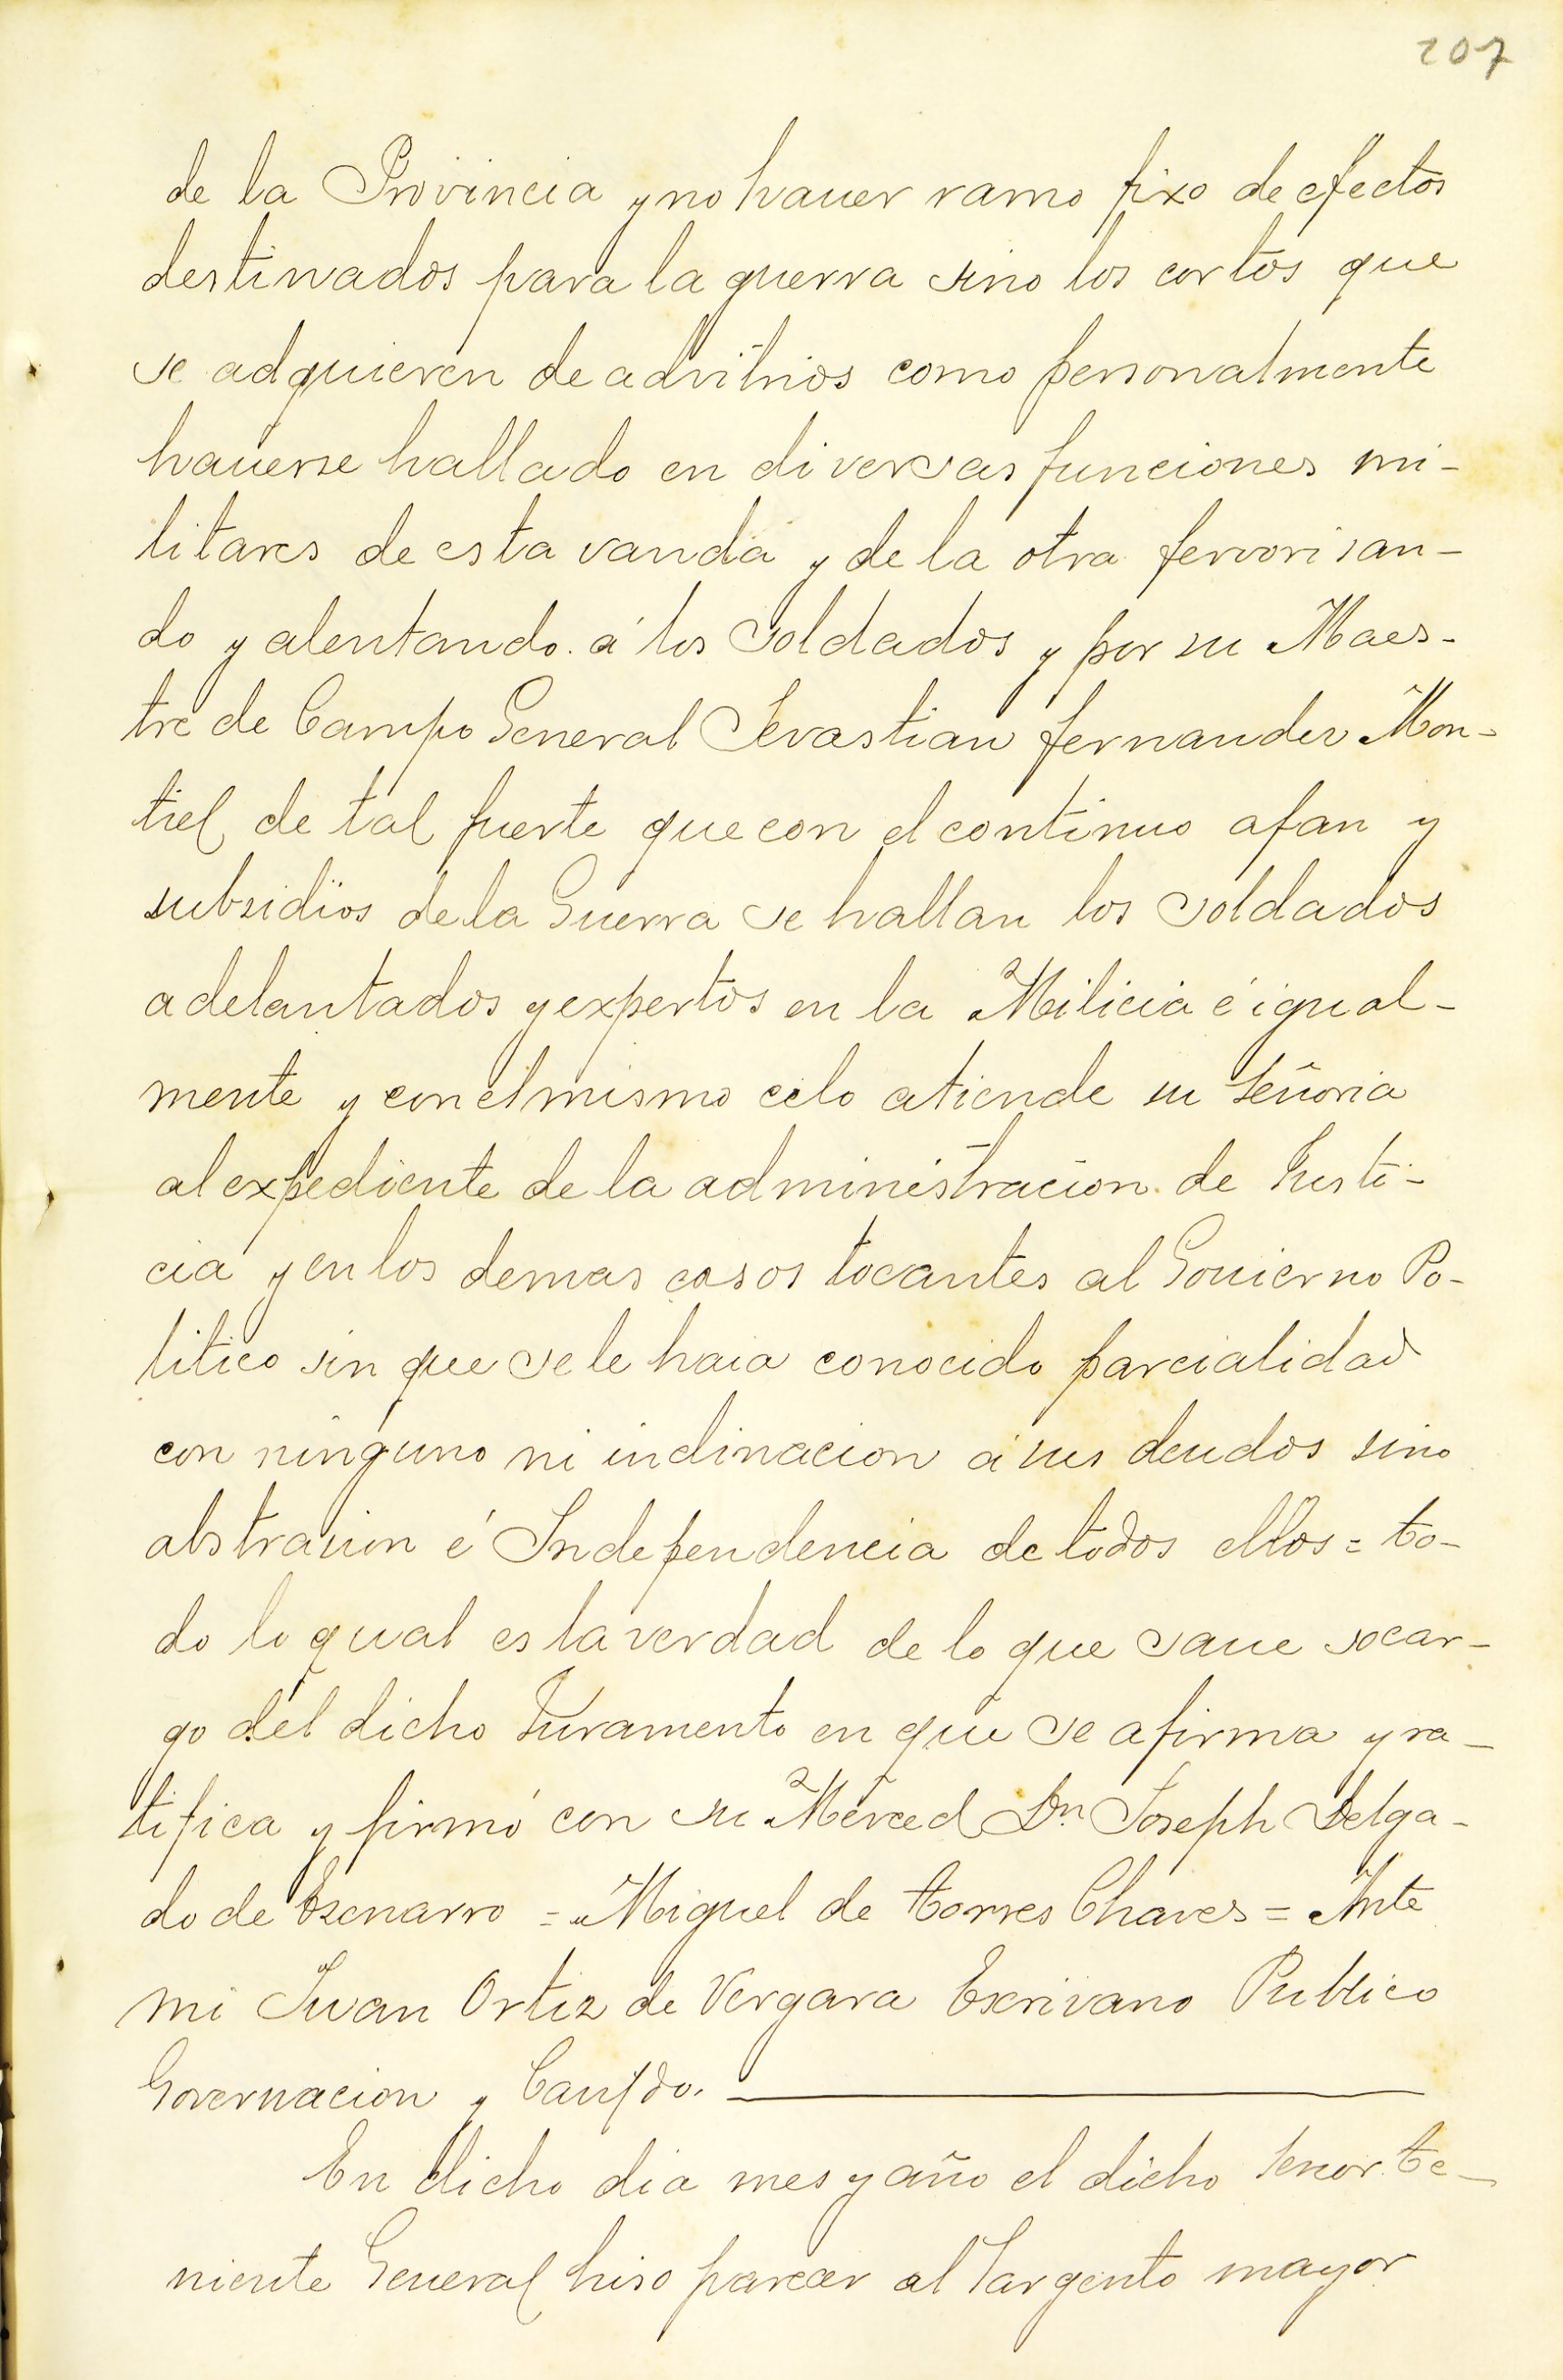 207
de la Provincia y no hauer ramo fixo de efectos
destinados para la guerra sino los cortos que
se adquieren de advitrios como personalmente
hauerse hallado en diversas funciones mi-
litares de esta vanda y de la otra fervorisan-
do y alentando á los Soldados y por su Maes-
tre de Campo General Sevastian fernander Mon-
tiel de tal fuerte que con el continuo afan y
subsidios de la Guerra se hallan los soldados
adelantados y expertos en la Milicia é igual-
mente y con el mismo celo atiende su Señoria
al expediente de la administracion de Justi-
cia y en los demas casos tocantes al Gouierno Po-
litico sin que se le haia conocido parcialidad
con ninguno ni inclinacion á sus deudos sino
abstrasion é Independencia de todos ellos = to-
do lo qual es la verdad de lo que saue socar-
go del dicho Juramento en que se afirma y ra-
tifica y firmó con su Merced Dn Joseph Delga-
do de = Miguel de torres Chaves = Ante
mi Juan Ortiz de Vergara Escrivano Publico
Governacion y
En dicho dia mes y año el dicho Senor te-
niente General hiso parecer al Sargento mayor